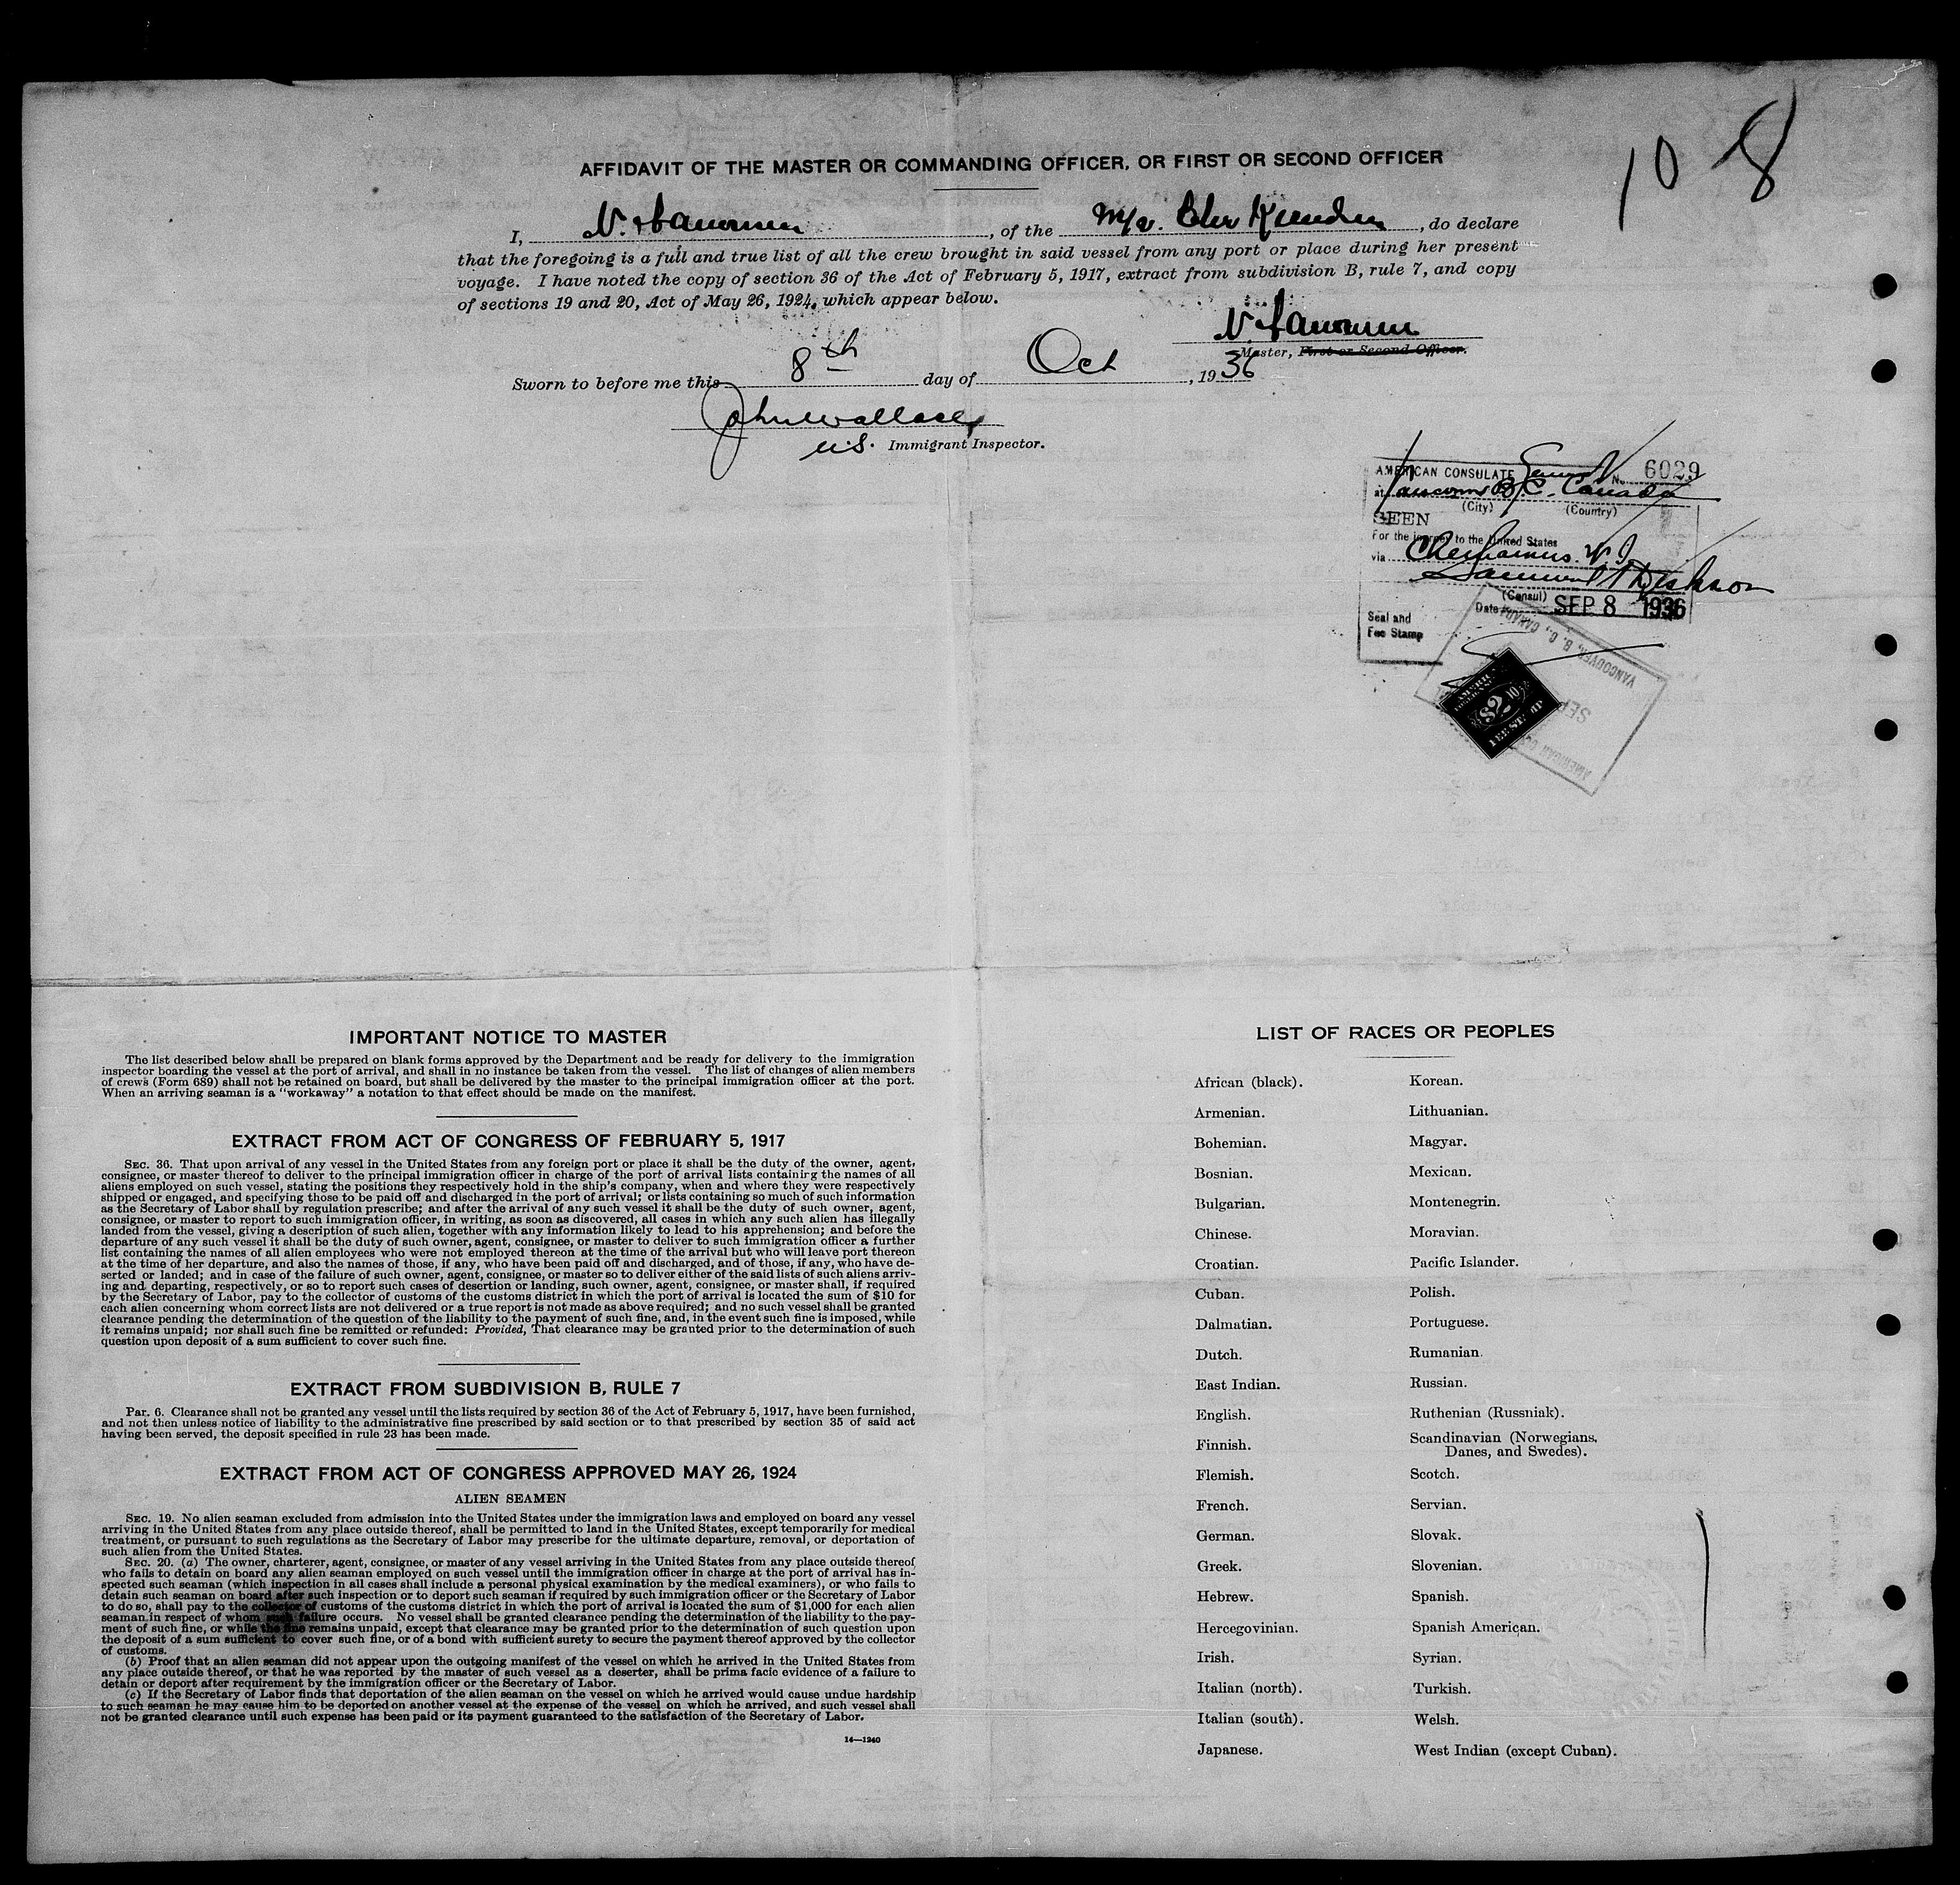 10 8
AFFIDAVIT OF THE MASTER OR COMMANDING OFFICER, OR FIRST OR SECOND OFFICER
I, N. , of the M/v. , do declare
that the foregoing is a full and true list of all the crew brought in said vessel from any port or place during her present
voyage. I have noted the copy of section 36 of the Act of February 5, 1917, extract from subdivision B, rule 7, and copy
of sections 19 and 20, Act of May 26, 1924, which appear below.
N.
Master, First or Second Officer.
Sworn to before me this 8th day of Oct , 1936
John Wallace
U.S. Immigrant Inspector.
AMERICAN CONSULATE General No. 6029
at Vancouver B.C. Canada
(City) (Country)
SEEN
For the journey to the United States
via Chemainus. V I
Samuel
(Consul)
Date SEP 8 1936
Seal and
Fee Stamp
VANCOUVER, B. C., CANADA
SEP
AMERICAN
AMERICAN
$2
FEE STAMP
IMPORTANT NOTICE TO MASTER
The list described below shall be prepared on blank forms approved by the Department and be ready for delivery to the immigration
inspector boarding the vessel at the port of arrival, and shall in no instance be taken from the vessel. The list of changes of alien members
of crews (Form 689) shall not be retained on board, but shall be delivered by the master to the principal immigration officer at the port.
When an arriving seaman is a "workaway" a notation to that effect should be made on the manifest.
EXTRACT FROM ACT OF CONGRESS OF FEBRUARY 5, 1917
SEC. 36. That upon arrival of any vessel in the United States from any foreign port or place it shall be the duty of the owner, agent,
consignee, or master thereof to deliver to the principal immigration officer in charge of the port of arrival lists containing the names of all
aliens employed on such vessel, stating the positions they respectively hold in the ship's company, when and where they were respectively
shipped or engaged, and specifying those to be paid off and discharged in the port of arrival; or lists containing so much of such information
as the Secretary of Labor shall by regulation prescribe; and after the arrival of any such vessel it shall be the duty of such owner, agent,
consignee, or master to report to such immigration officer, in writing, as soon as discovered, all cases in which any such alien has illegally
landed from the vessel, giving a description of such alien, together with any information likely to lead to his apprehension; and before the
departure of any such vessel it shall be the duty of such owner, agent, consignee, or master to deliver to such immigration officer a further
list containing the names of all alien employees who were not employed thereon at the time of the arrival but who will leave port thereon
at the time of her departure, and also the names of those, if any, who have been paid off and discharged, and of those, if any, who have de-
serted or landed; and in case of the failure of such owner, agent, consignee, or master so to deliver either of the said lists of such aliens arriv-
ing and departing, respectively, or so to report such cases of desertion or landing, such owner, agent, consignee, or master shall, if required
by the Secretary of Labor, pay to the collector of customs of the customs district in which the port of arrival is located the sum of $10 for
each alien concerning whom correct lists are not delivered or a true report is not made as above required; and no such vessel shall be granted
clearance pending the determination of the question of the liability to the payment of such fine, and, in the event such fine is imposed, while
it remains unpaid; nor shall such fine be remitted or refunded: Provided, That clearance may be granted prior to the determination of such
question upon deposit of a sum sufficient to cover such fine.
EXTRACT FROM SUBDIVISION B, RULE 7
Par. 6. Clearance shall not be granted any vessel until the lists required by section 36 of the Act of February 5, 1917, have been furnished,
and not then unless notice of liability to the administrative fine prescribed by said section or to that prescribed by section 35 of said act
having been served, the deposit specified in rule 23 has been made.
EXTRACT FROM ACT OF CONGRESS APPROVED MAY 26, 1924
ALIEN SEAMEN
SEC. 19. No alien seaman excluded from admission into the United States under the immigration laws and employed on board any vessel
arriving in the United States from any place outside thereof, shall be permitted to land in the United States, except temporarily for medical
treatment, or pursuant to such regulations as the Secretary of Labor may prescribe for the ultimate departure, removal, or deportation of
such alien from the United States.
SEC. 20. (a) The owner, charterer, agent, consignee, or master of any vessel arriving in the United States from any place outside thereof
who fails to detain on board any alien seaman employed on such vessel until the immigration officer in charge at the port of arrival has in-
spected such seaman (which inspection in all cases shall include a personal physical examination by the medical examiners), or who fails to
detain such seaman on board after such inspection or to deport such seaman if required by such immigration officer or the Secretary of Labor
to do so, shall pay to the collector of customs of the customs district in which the port of arrival is located the sum of $1,000 for each alien
seaman in respect of whom such failure occurs. No vessel shall be granted clearance pending the determination of the liability to the pay-
ment of such fine, or while the fine remains unpaid, except that clearance may be granted prior to the determination of such question upon
the deposit of a sum sufficient to cover such fine, or of a bond with sufficient surety to secure the payment thereof approved by the collector
of customs.
(b) Proof that an alien seaman did not appear upon the outgoing manifest of the vessel on which he arrived in the United States from
any place outside thereof, or that he was reported by the master of such vessel as a deserter, shall be prima facie evidence of a failure to
detain or deport after requirement by the immigration officer or the Secretary of Labor.
(c) If the Secretary of Labor finds that deportation of the alien seaman on the vessel on which he arrived would cause undue hardship
to such seaman he may cause him to be deported on another vessel at the expense of the vessel on which he arrived, and such vessel shall
not be granted clearance until such expense has been paid or its payment guaranteed to the satisfaction of the Secretary of Labor.
14—1240
LIST OF RACES OR PEOPLES
African (black).
Armenian.
Bohemian.
Bosnian.
Bulgarian.
Chinese.
Croatian.
Cuban.
Dalmatian.
Dutch.
East Indian.
English.
Finnish.
Flemish.
French.
German.
Greek.
Hebrew.
Hercegovinian.
Irish.
Italian (north).
Italian (south).
Japanese.
Korean.
Lithuanian.
Magyar.
Mexican.
Montenegrin.
Moravian.
Pacific Islander.
Polish.
Portuguese.
Rumanian.
Russian.
Ruthenian (Russniak).
Scandinavian (Norwegians,
Danes, and Swedes).
Scotch.
Servian.
Slovak.
Slovenian.
Spanish.
Spanish American.
Syrian.
Turkish.
Welsh.
West Indian (except Cuban).